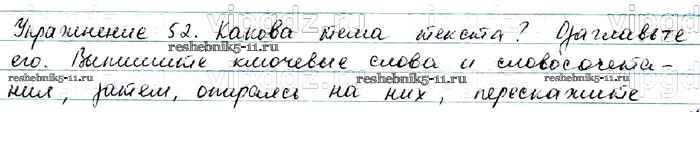 Упражнение 52. Какова тема текста? Озаглавьте
его. Выпишите ключевые слова и словосочета-
ния, затем, опираясь на них, перескажите
reshebnik5-11.ru reshebnik5-11.ru
reshebnik5-11.ru reshebnik5-11.ru